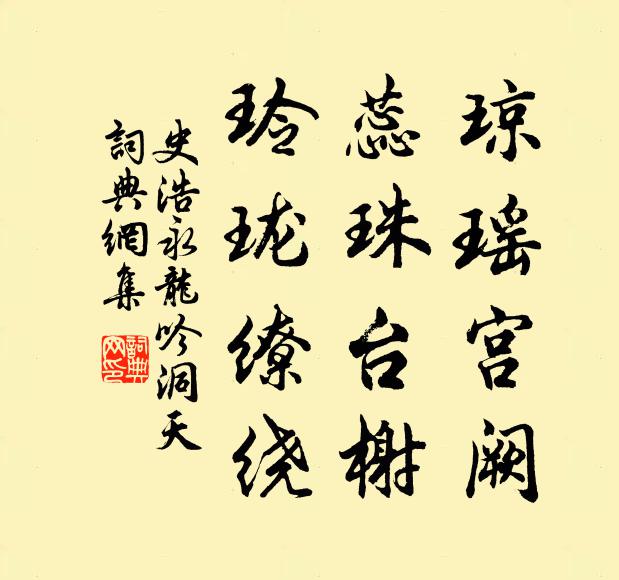 琼瑶宫阙
蕊珠台榭
玲珑缭绕
史浩永龍吟洞天
詞典網集
詞典
网印